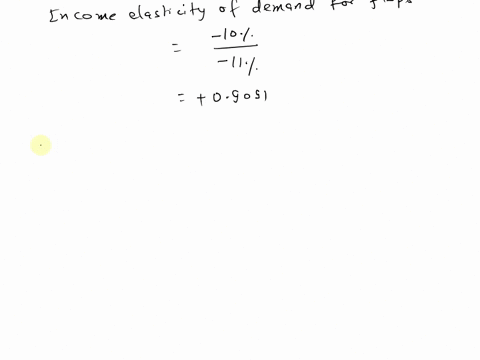 Income elasticity of demand for
= -10%
-11%
= + 0.9051